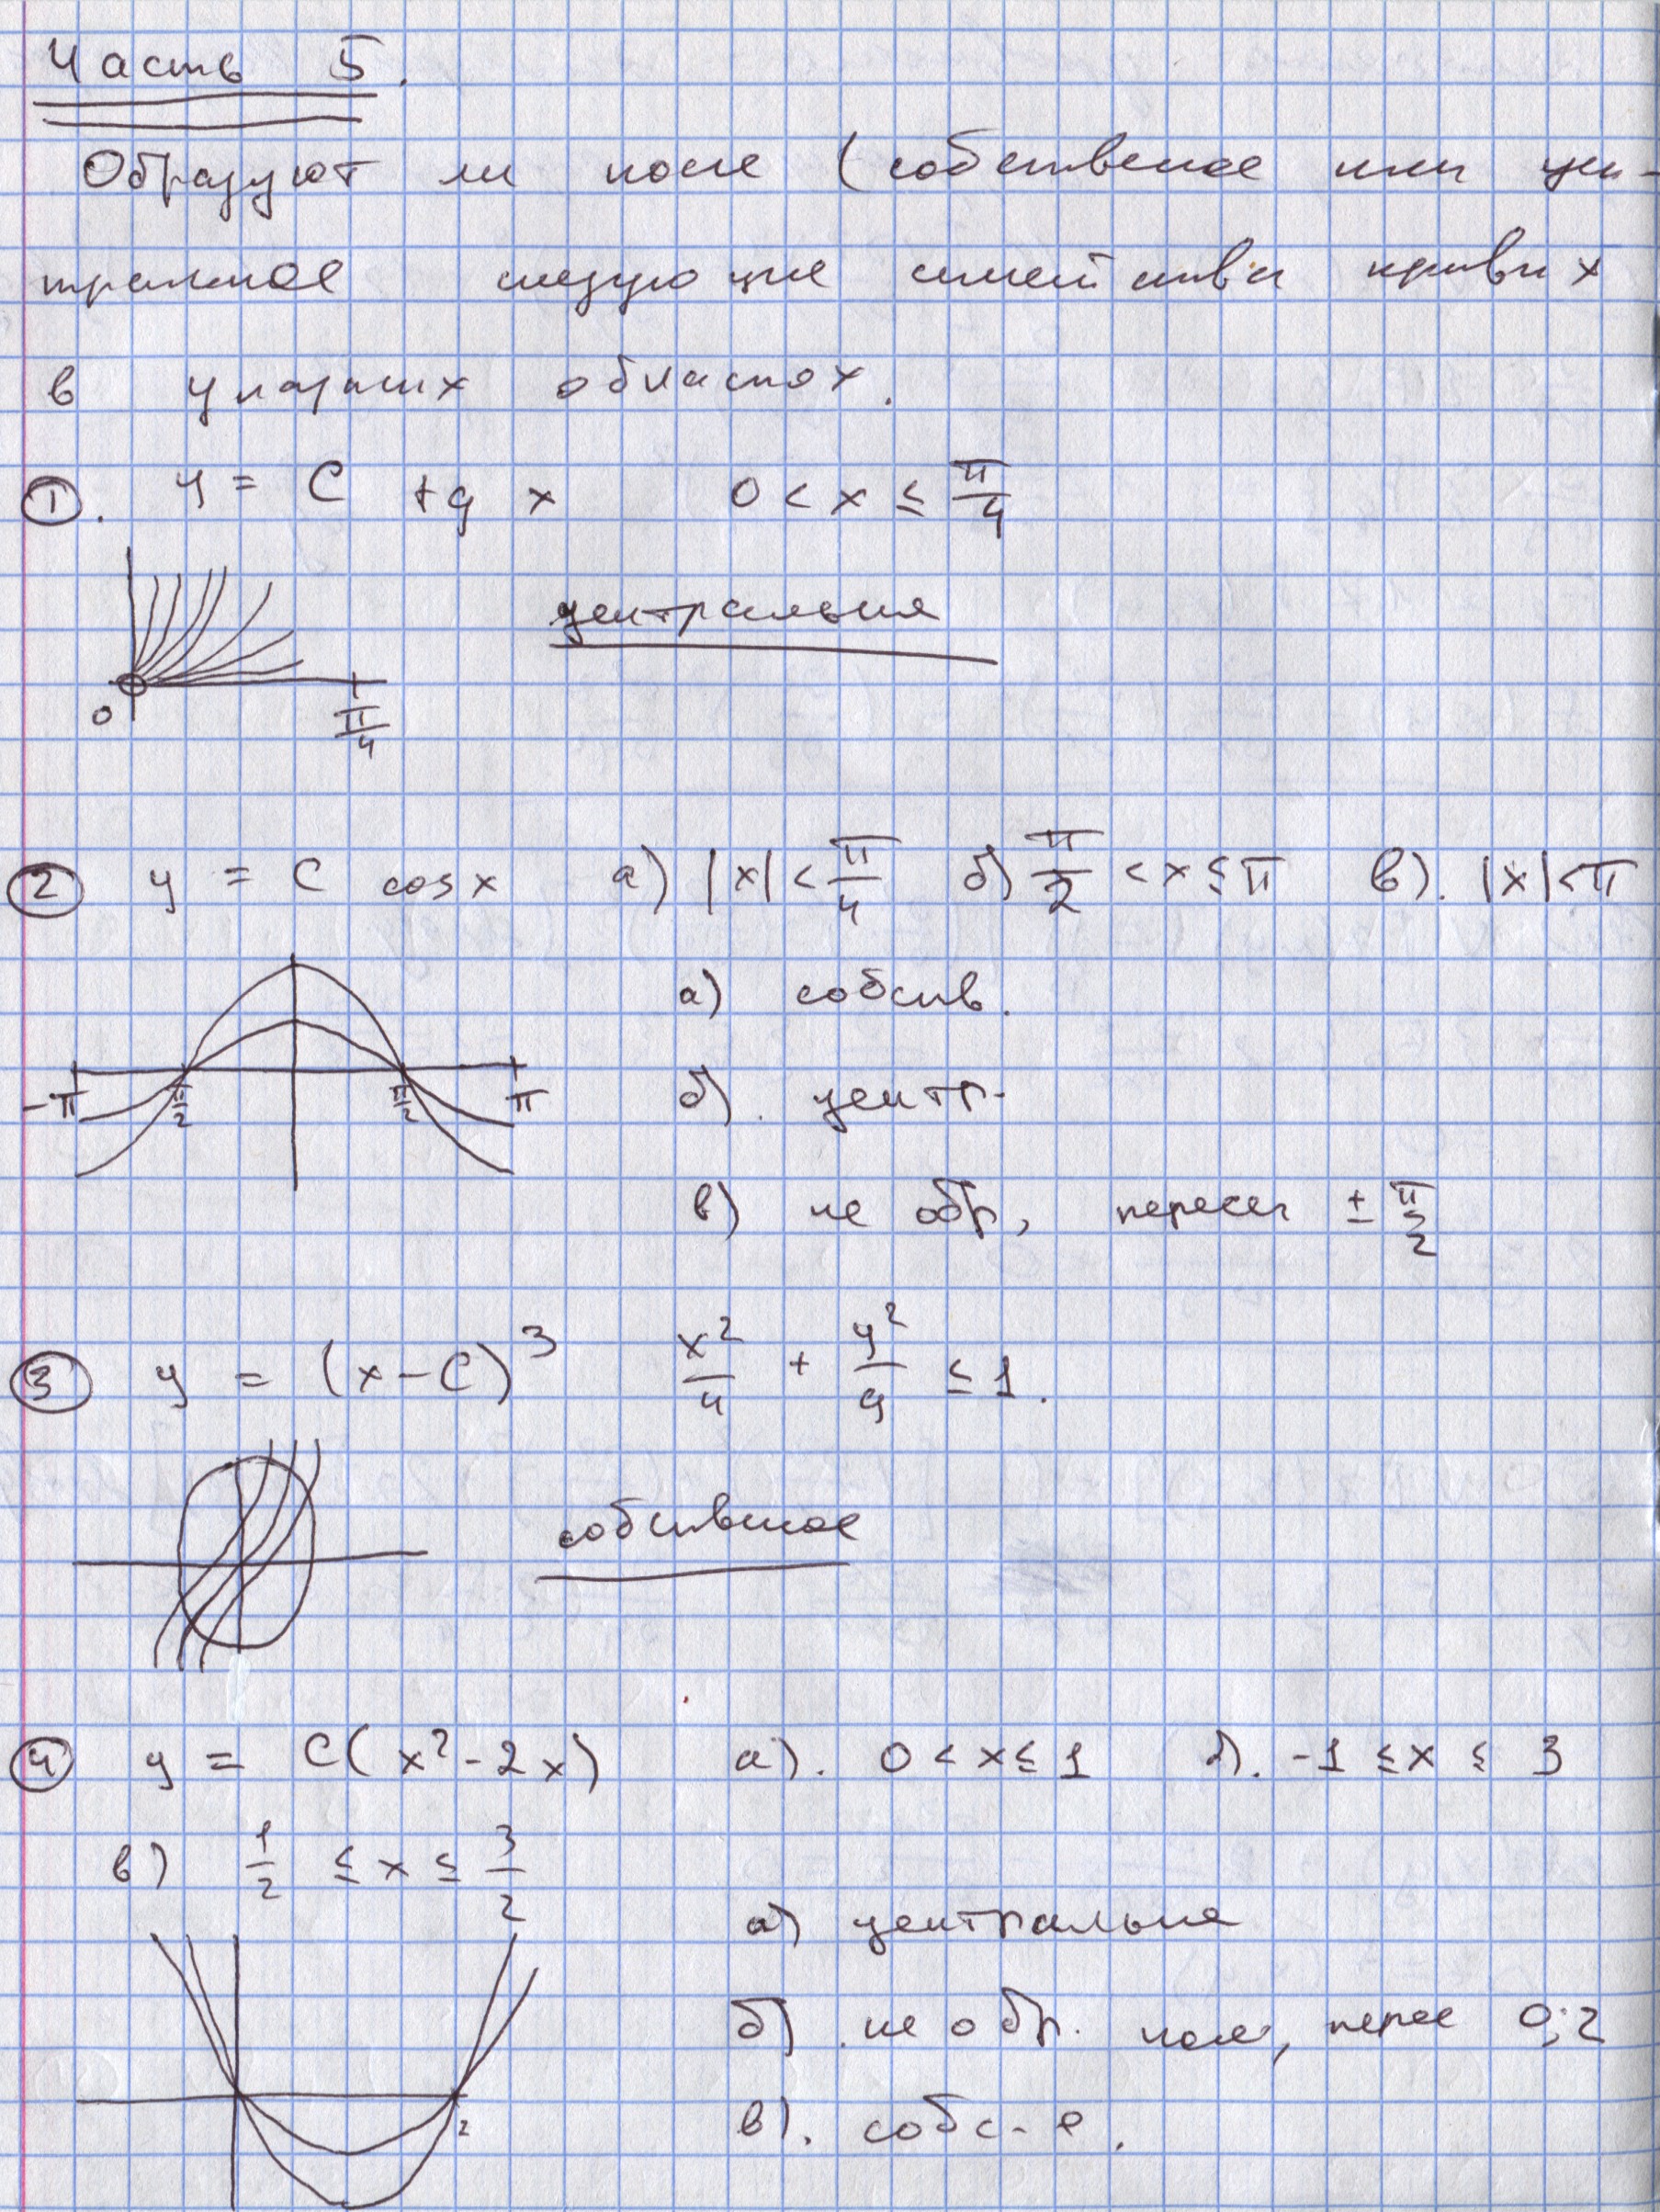 Часть 5.
Образуют ли поле (собственое или цен-
тральное следующие семейства кривых
в указаных областях.
1. y = C tg x 0 < x ≤ π/4
центральные
0 π/4
2 y = C cos x а) |x| < π/4 б) π/2 < x ≤ π в). |x| < π
а) собств.
-π π/2 π/2 π б). центр.
в) не обр, пересеч ± π/2
3 y = (x - C)^3 x^2/4 + y^2/9 ≤ 1.
собственое
4 y = C(x^2 - 2x) а). 0 < x ≤ 1 б). -1 ≤ x ≤ 3
в) 1/2 ≤ x ≤ 3/2
а) центральные
б) не обр. поле, перес 0; 2
2 в). собс-е.